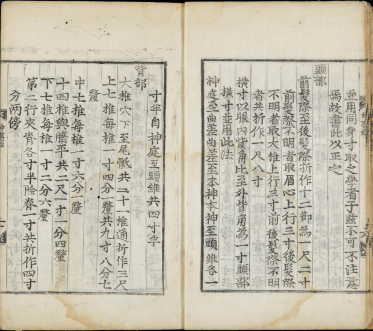 並用同身寸取之學者于茲不可不注意
焉故書此以正之
頭部
前髮際至後髮際折作十二節爲一尺二寸
前髮際不明者取眉心上行三寸後髮際
不明者取大椎上行三寸前後髮際不明
者共折作一尺八寸
橫寸以眼內眥角比至外眥角爲一寸頭部
橫寸並用此法
神庭至曲差曲差至本神本神至頭維各一
寸半自神庭至頭維共四寸半
背部
大椎穴下至尾骶共二十一椎通折作三尺
上七椎每椎一寸四分一釐共九寸八分七
釐
中七椎每椎一寸六分一釐
十四椎與臍平共二尺一寸一分四釐
下七椎每椎一寸二分六釐
第二行夾脊各寸半除脊一寸共折作四寸
分兩傍